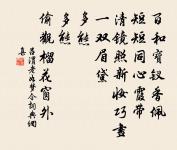 百和寶釵香佩
短短同心霞帶
清鏡照新妝巧畫
一雙眉黛
多態
多態
偷觀榴花窗外
呂渭老如夢令詞典網
集